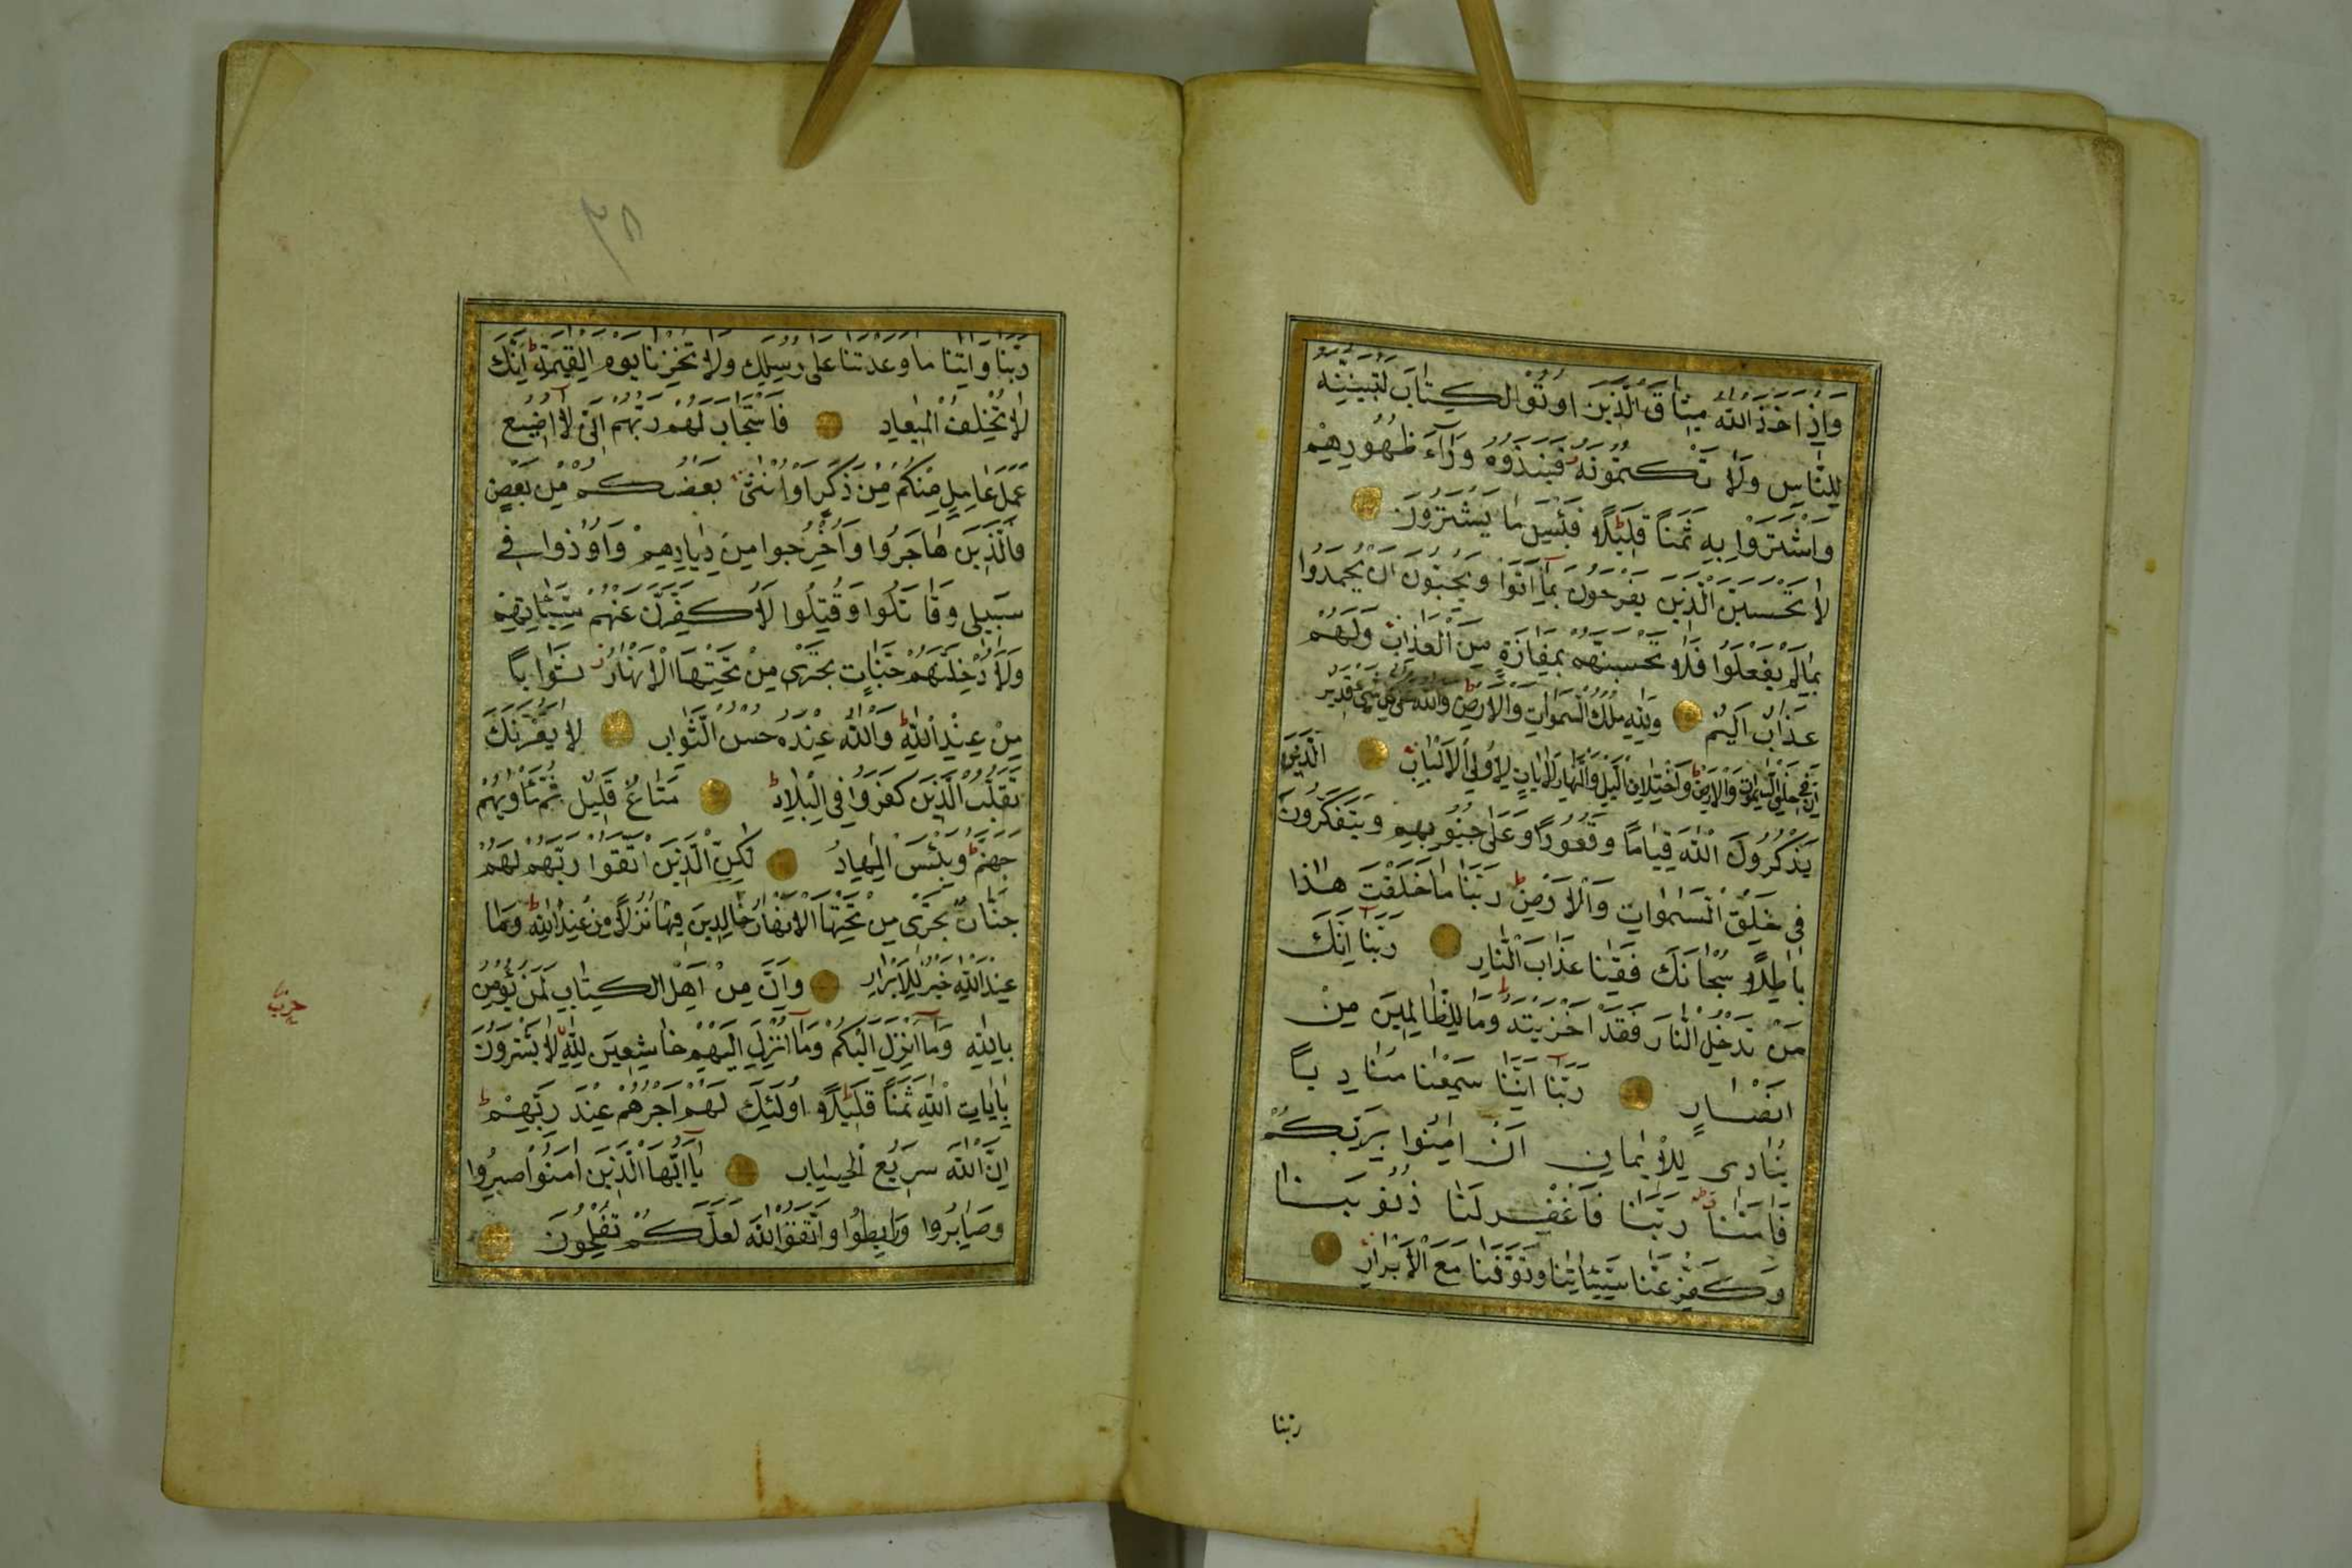 وَاِذْ اَخَذَ اللّٰهُ مِيثَاقَ الَّذِينَ اُوتُوا الْكِتَابَ لَتُبَيِّنُنَّهُ
لِلنَّاسِ وَلَا تَكْتُمُونَهُ فَنَبَذُوهُ وَرَاءَ ظُهُورِهِمْ
وَاشْتَرَوْا بِهِ ثَمَنًا قَلِيلًا فَبِئْسَ مَا يَشْتَرُونَ
لَا تَحْسَبَنَّ الَّذِينَ يَفْرَحُونَ بِمَا اَتَوْا وَيُحِبُّونَ اَنْ يُحْمَدُوا
بِمَا لَمْ يَفْعَلُوا فَلَا تَحْسَبَنَّهُمْ بِمَفَازَةٍ مِنَ الْعَذَابِ وَلَهُمْ
عَذَابٌ اَلِيمٌ وَلِلّٰهِ مُلْكُ السَّمٰوَاتِ وَالْاَرْضِ وَاللّٰهُ عَلٰى كُلِّ شَيْءٍ قَدِيرٌ
اِنَّ فِي خَلْقِ السَّمٰوَاتِ وَالْاَرْضِ وَاخْتِلَافِ الَّيْلِ وَالنَّهَارِ لَاٰيَاتٍ لِاُولِي الْاَلْبَابِ الَّذِينَ
يَذْكُرُونَ اللّٰهَ قِيَامًا وَقُعُودًا وَعَلٰى جُنُوبِهِمْ وَيَتَفَكَّرُونَ
فِي خَلْقِ السَّمٰوَاتِ وَالْاَرْضِ رَبَّنَا مَا خَلَقْتَ هٰذَا
بَاطِلًا سُبْحَانَكَ فَقِنَا عَذَابَ النَّارِ رَبَّنَا اِنَّكَ
مَنْ تُدْخِلِ النَّارَ فَقَدْ اَخْزَيْتَهُ وَمَا لِلظَّالِمِينَ مِنْ
اَنْصَارٍ رَبَّنَا اِنَّنَا سَمِعْنَا مُنَادِيًا
يُنَادِي لِلْاِيمَانِ اَنْ اٰمِنُوا بِرَبِّكُمْ
فَاٰمَنَّا رَبَّنَا فَاغْفِرْ لَنَا ذُنُوبَنَا
وَكَفِّرْ عَنَّا سَيِّئَاتِنَا وَتَوَفَّنَا مَعَ الْاَبْرَارِ
ربنا
٣٨
رَبَّنَا وَاٰتِنَا مَا وَعَدْتَنَا عَلٰى رُسُلِكَ وَلَا تُخْزِنَا يَوْمَ الْقِيٰمَةِ اِنَّكَ
لَا تُخْلِفُ الْمِيعَادَ فَاسْتَجَابَ لَهُمْ رَبُّهُمْ اَنِّي لَا اُضِيعُ
عَمَلَ عَامِلٍ مِنْكُمْ مِنْ ذَكَرٍ اَوْ اُنْثٰى بَعْضُكُمْ مِنْ بَعْضٍ
فَالَّذِينَ هَاجَرُوا وَاُخْرِجُوا مِنْ دِيَارِهِمْ وَاُوذُوا فِي
سَبِيلِي وَقَاتَلُوا وَقُتِلُوا لَاُكَفِّرَنَّ عَنْهُمْ سَيِّئَاتِهِمْ
وَلَاُدْخِلَنَّهُمْ جَنَّاتٍ تَجْرِي مِنْ تَحْتِهَا الْاَنْهَارُ ثَوَابًا
مِنْ عِنْدِ اللّٰهِ وَاللّٰهُ عِنْدَهُ حُسْنُ الثَّوَابِ لَا يَغُرَّنَّكَ
تَقَلُّبُ الَّذِينَ كَفَرُوا فِي الْبِلَادِ مَتَاعٌ قَلِيلٌ ثُمَّ مَأْوٰيهُمْ
جَهَنَّمُ وَبِئْسَ الْمِهَادُ لٰكِنِ الَّذِينَ اتَّقَوْا رَبَّهُمْ لَهُمْ
جَنَّاتٌ تَجْرِي مِنْ تَحْتِهَا الْاَنْهَارُ خَالِدِينَ فِيهَا نُزُلًا مِنْ عِنْدِ اللّٰهِ وَمَا
عِنْدَ اللّٰهِ خَيْرٌ لِلْاَبْرَارِ وَاِنَّ مِنْ اَهْلِ الْكِتَابِ لَمَنْ يُؤْمِنُ
بِاللّٰهِ وَمَا اُنْزِلَ اِلَيْكُمْ وَمَا اُنْزِلَ اِلَيْهِمْ خَاشِعِينَ لِلّٰهِ لَا يَشْتَرُونَ
بِاٰيَاتِ اللّٰهِ ثَمَنًا قَلِيلًا اُولٰئِكَ لَهُمْ اَجْرُهُمْ عِنْدَ رَبِّهِمْ
اِنَّ اللّٰهَ سَرِيعُ الْحِسَابِ يَا اَيُّهَا الَّذِينَ اٰمَنُوا اصْبِرُوا
وَصَابِرُوا وَرَابِطُوا وَاتَّقُوا اللّٰهَ لَعَلَّكُمْ تُفْلِحُونَ
حزب